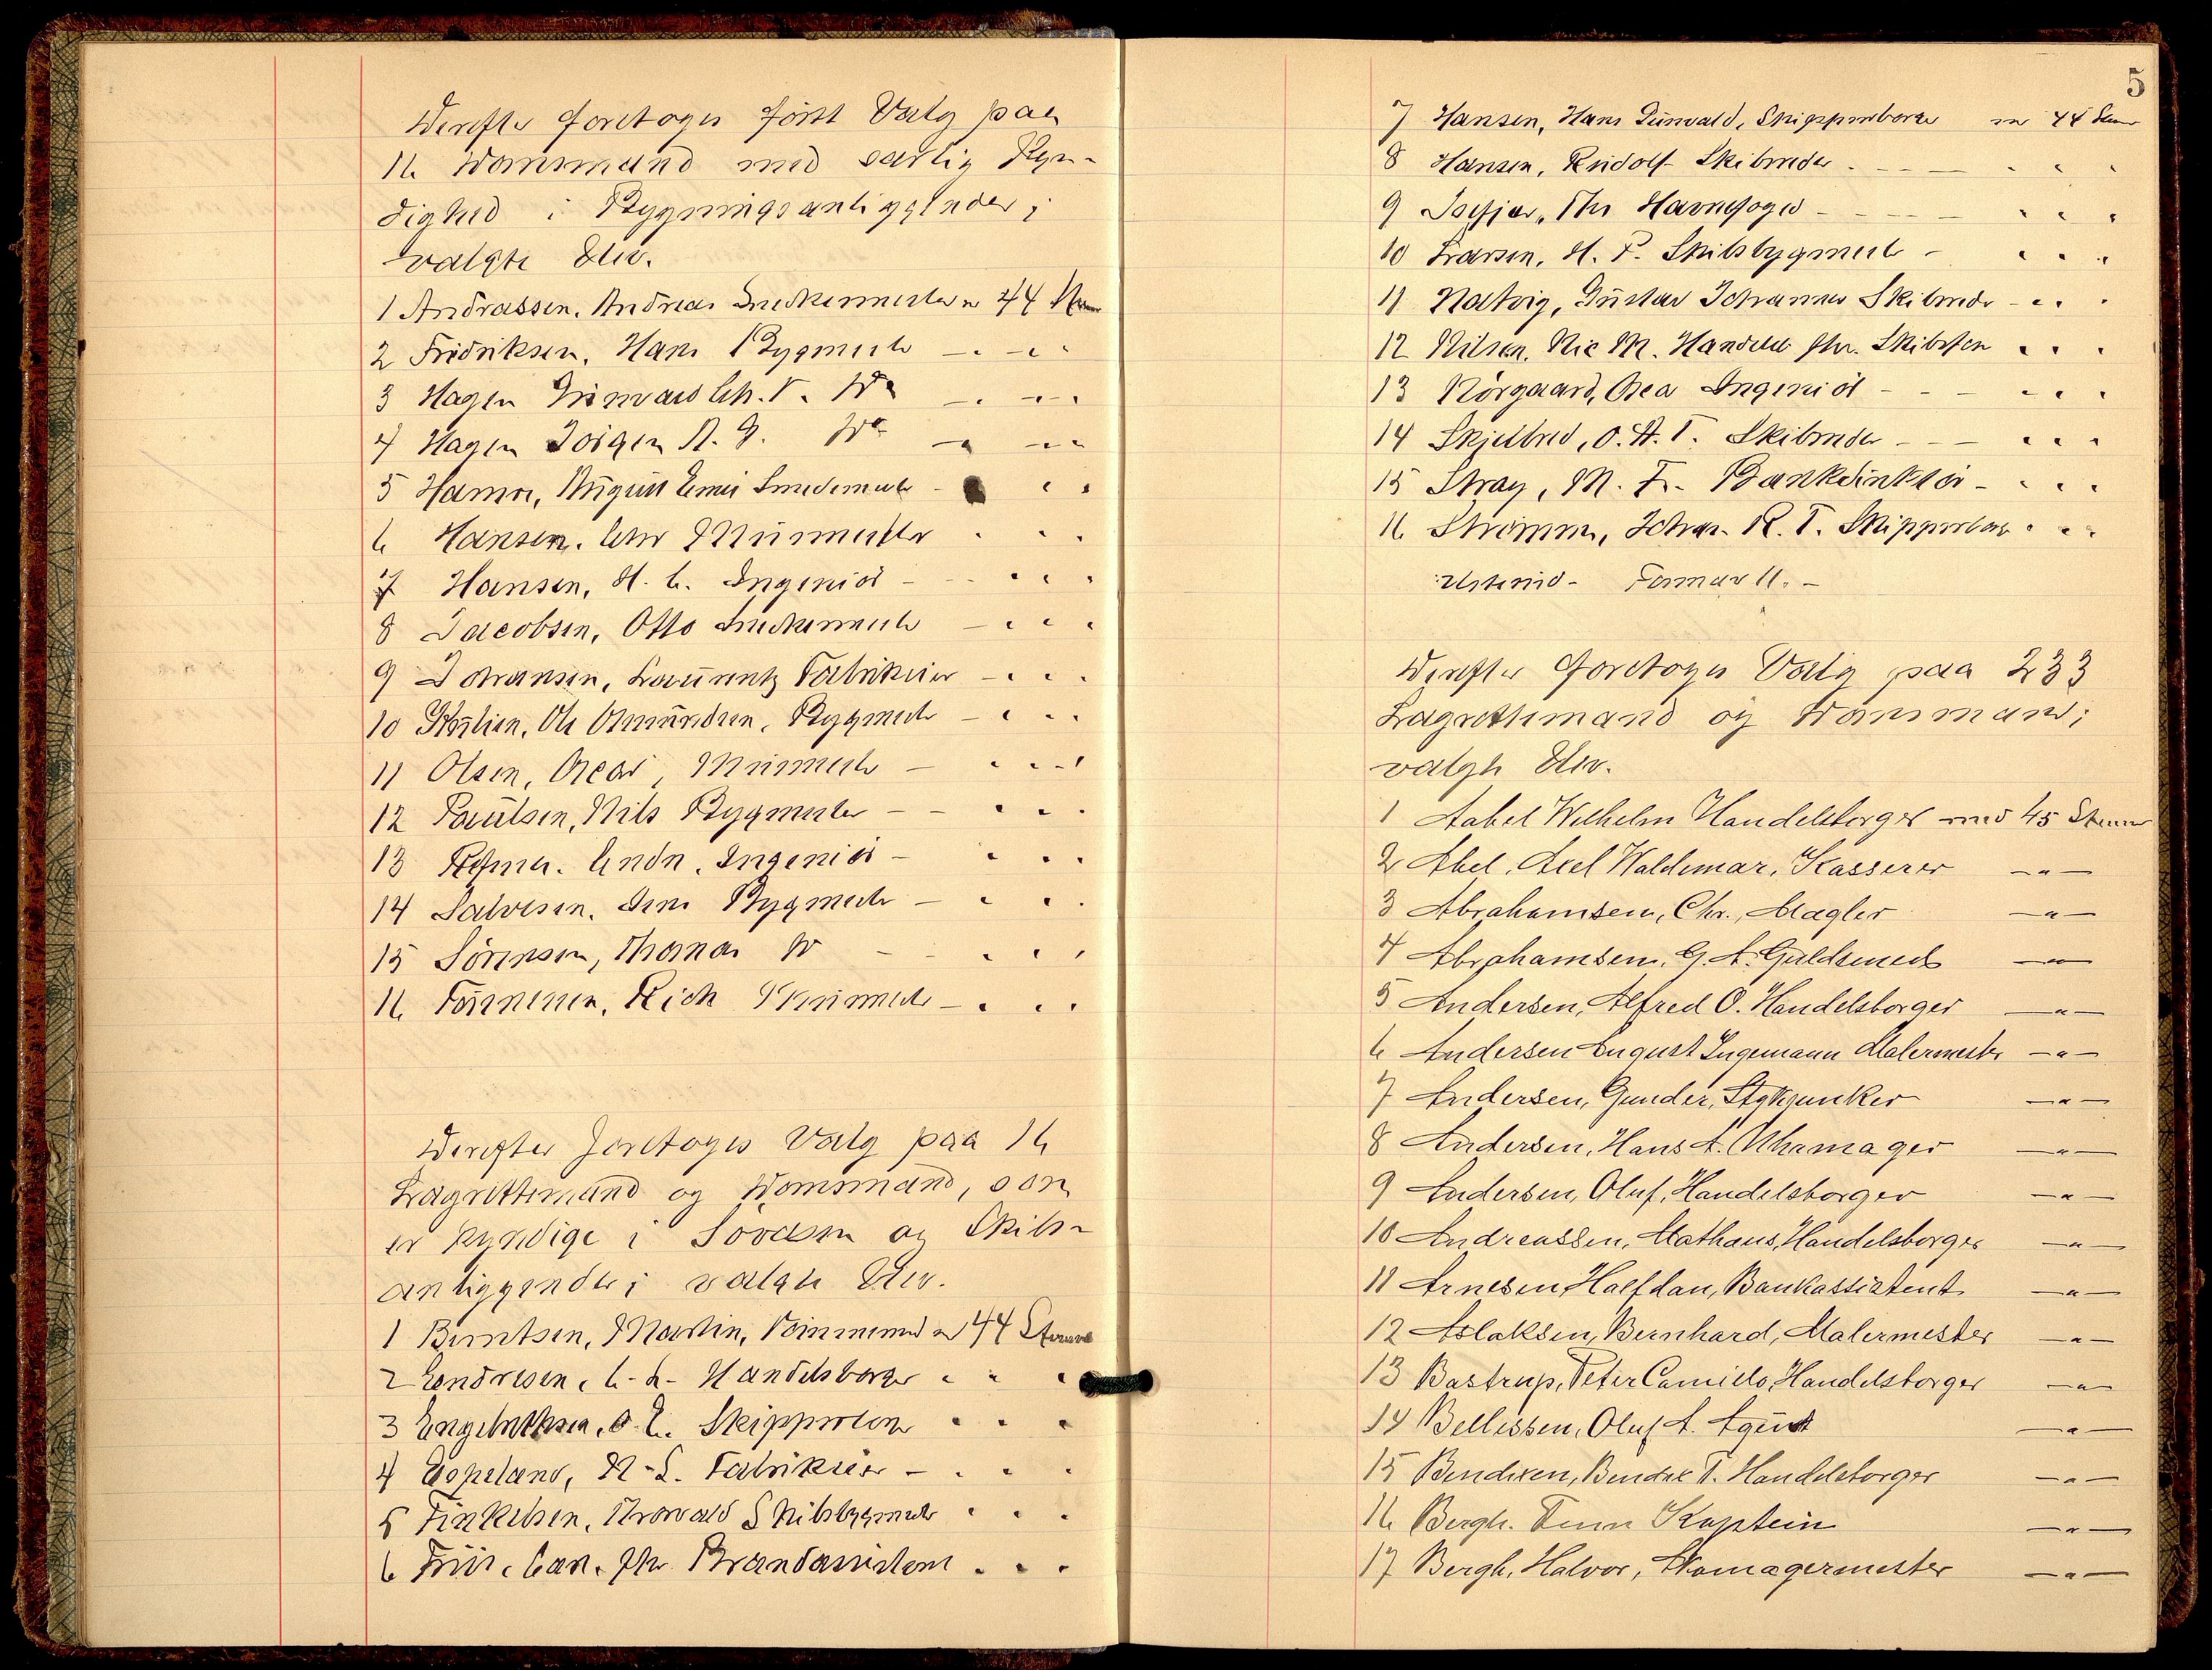 Derefter foretoges först Valg paa
16 Domsmænd med særlig Kyn-
dighed i Bygningsanliggender;
valgte blev.
1 Andrassen, Andreas Snedkermester m 44 Stemmer
2 Fridriksen, Hans Bygmester — " — " "
3 Hagen Grimvard Chr. F. Do — " — " "
4 Hagen Jörgen A. G. Do — " — " "
5 Hamre, August Emil Smedemester - " "
6 Hansen, Chr Murmester " " "
7 Hansen, H. C. Ingeniör - - " " "
8 Jacobsen, Otto Snedkermester — " " "
9 Johansen, Lauuentz Fabrikeier — " " "
10 Ole Omundsen, Bygmester — " " "
11 Olsen, Oscar, Murmester — " " "
12 Paulsen, Nils Bygmester — — " " "
13 Endr. Ingeniör — " " "
14 Salvesen, Jens Bygmester — " " "
15 Sörensen, Thomas Do — " " "
16 Tönnesen, Rich Murmester — " " "
Derefter foretoges Valg paa 16
Lagrettemænd og Domsmænd, som
er kyndige i Sövæsen og Skibs-
anliggender; valgte blev.
1 Berntsen, Martin, m 44 Stemmer
2 Endresen, C. L. Handelsborger " " "
3 Engebrethsen, O. E. Skipperborger " " "
4 Espeland, N. S. Fabrikeier — " " "
5 Finkelsen, Thorvald Skibsbygmester " " "
6 Friis, Carl. Fhr. Brandassistent " " "
5
7 Hansen, Hans Gunvald, Skipperborger m 44 Stemmer
8 Hansen, Rudolf Skibsreder - - - — " " "
9 Isefjær, Thr Havnefoged - - - — " " "
10 Larsen, H. P. Skibsbygmester — " " "
11 Natvig, Gustav Johannes Skibsreder - " " "
12 Nilsen, Nic M. Handels fhv. Skibsfören " " "
13 Nörgaard, Osca Ingeniör - - — " " "
14 Skjelbred, O. A. T. Skibsreder - - — " " "
15 Stray, M. F. Bankdirektör - " " "
16 Strömme, Johan R. T. Skipperborger " " "
Derefter foretoges Valg paa 233
Lagrettemænd og Domsmænd;
valgte blev.
1 Aabel Wilhelm Handelsborger med 45 Stemmer
2 Abel, Axel Waldemar, Kasserer — " —
3 Abrahamsen, Chr., Mægler — " —
4 Abrahamsen, G. A. Guldsmed — " —
5 Andersen, Alfred O. Handelsborger — " —
6 Andersen August Ingemann Malermester — " —
7 Andersen, Gunder, Stykjunker — " —
8 Andersen, Hans A. Uhrmager — " —
9 Andersen, Oluf, Handelsborger — " —
10 Andreassen, Mathæus, Handelsborger — " —
11 Arnesen Halfdan, Bankassistent — " —
12 Aslaksen, Bernhard, Malermester — " —
13 Bastrup, Peter Camielo, Handelsborger — " —
14 Bellessen, Oluf A. Agent — " —
15 Bendixen, Bendix T. Handelsborger — " —
16 Bergh. Finn Kaptein — " —
17 Bergh, Halvor, Skomagermester — " —